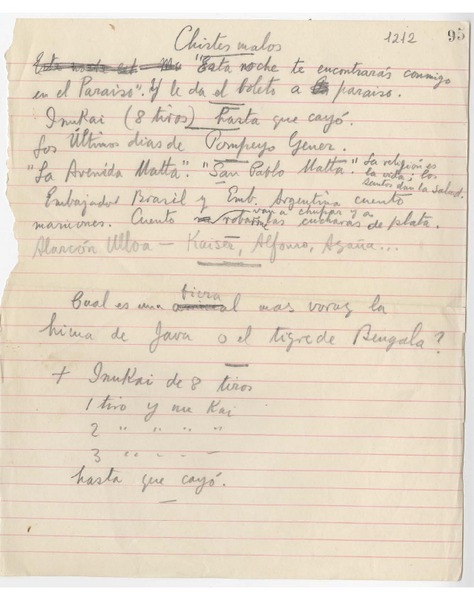 Chistes malos
1212
95
"Esta noche te encontrarás conmigo
en el Paraiso". Y le da el boleto a paraiso.
InuKai (8 tiros) hasta que cayó.
Los Últimos dias de Pompeyo Gener.
"La Avenida Matta". "San Pablo Matta". La religión es
la vida; los
santos dan la salud.
Embajador Brasil y Emb. Argentina cuento
maricones. Cuento van a chupar y a
robar las cucharas de plata.
Alarcón Ulloa — Kaiser, Alfonso, Azaña...
Cual es una fiera
mas voraz la
hiena de Java o el tigre de Bengala?
+ InuKai de 8 tiros
1 tiro y nu Kai
2 " " " "
3 " " " "
hasta que cayó.